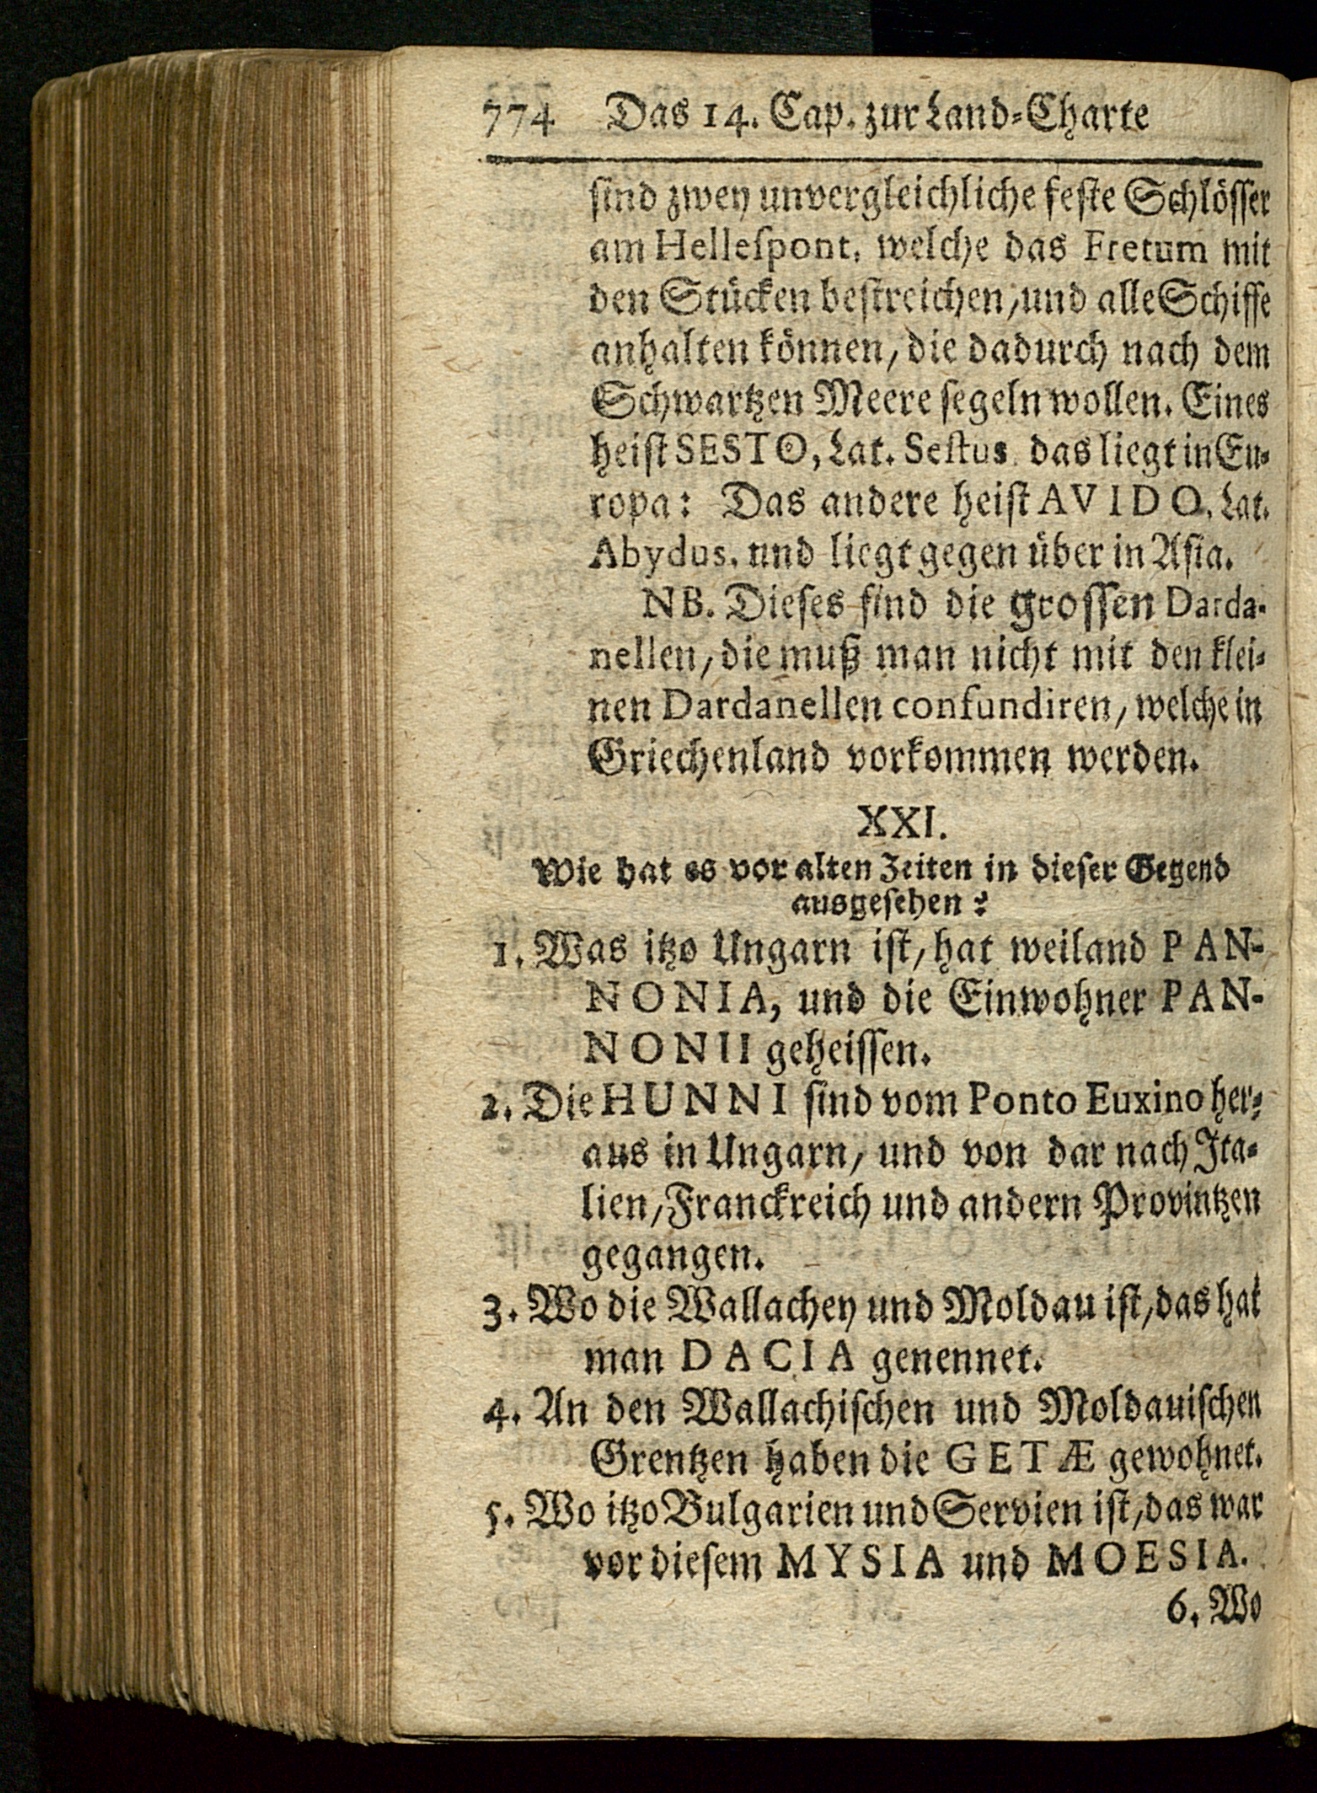 774 Das 14. Cap. zur Land-Charte
sind zwey unvergleichliche feste Schlösser
am Hellespont, welche das Fretum mit
den Stücken bestreichen, und alle Schiffe
anhalten können, die dadurch nach dem
Schwartzen Meere segeln wollen. Eines
heist SESTO, Lat. Sestus, das liegt in Eu-
ropa: Das andere heist AVIDO, Lat.
Abydus, und liegt gegen über in Asia.
NB. Dieses sind die grossen Darda-
nellen, die muß man nicht mit den klei-
nen Dardanellen confundiren, welche in
Griechenland vorkommen werden.
XXI.
Wie hat es vor alten Zeiten in dieser Gegend
ausgesehen?
1. Was itzo Ungarn ist, hat weiland PAN-
NONIA, und die Einwohner PAN-
NONII geheissen.
2. Die HUNNI sind vom Ponto Euxino her-
aus in Ungarn, und von dar nach Ita-
lien, Franckreich und andern Provintzen
gegangen.
3. Wo die Wallachey und Moldau ist, das hat
man DACIA genennet.
4. An den Wallachischen und Moldauischen
Grentzen haben die GETÆ gewohnet.
5. Wo itzo Bulgarien und Servien ist, das war
vor diesem MYSIA und MOESIA.
6. Wo